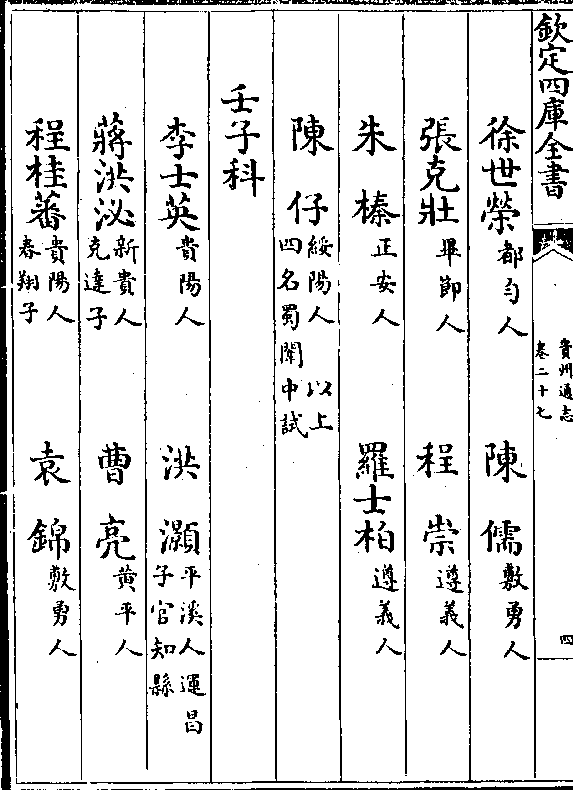 欽定四庫全書
貴州通志
卷二十七
四
徐世榮 都勻人 陳儒 敷勇人
張克壯 畢節人 程崇 遵義人
朱榛 正安人 羅士柏 遵義人
陳仔 綏陽人 以上四名蜀闈中試
壬子科
李士英 貴陽人 洪灝 平溪人運昌子官知縣
蔣洪泌 新貴人克達子 曹亮 黃平人
程桂蕃 貴陽人春翔子 袁錦 敷勇人